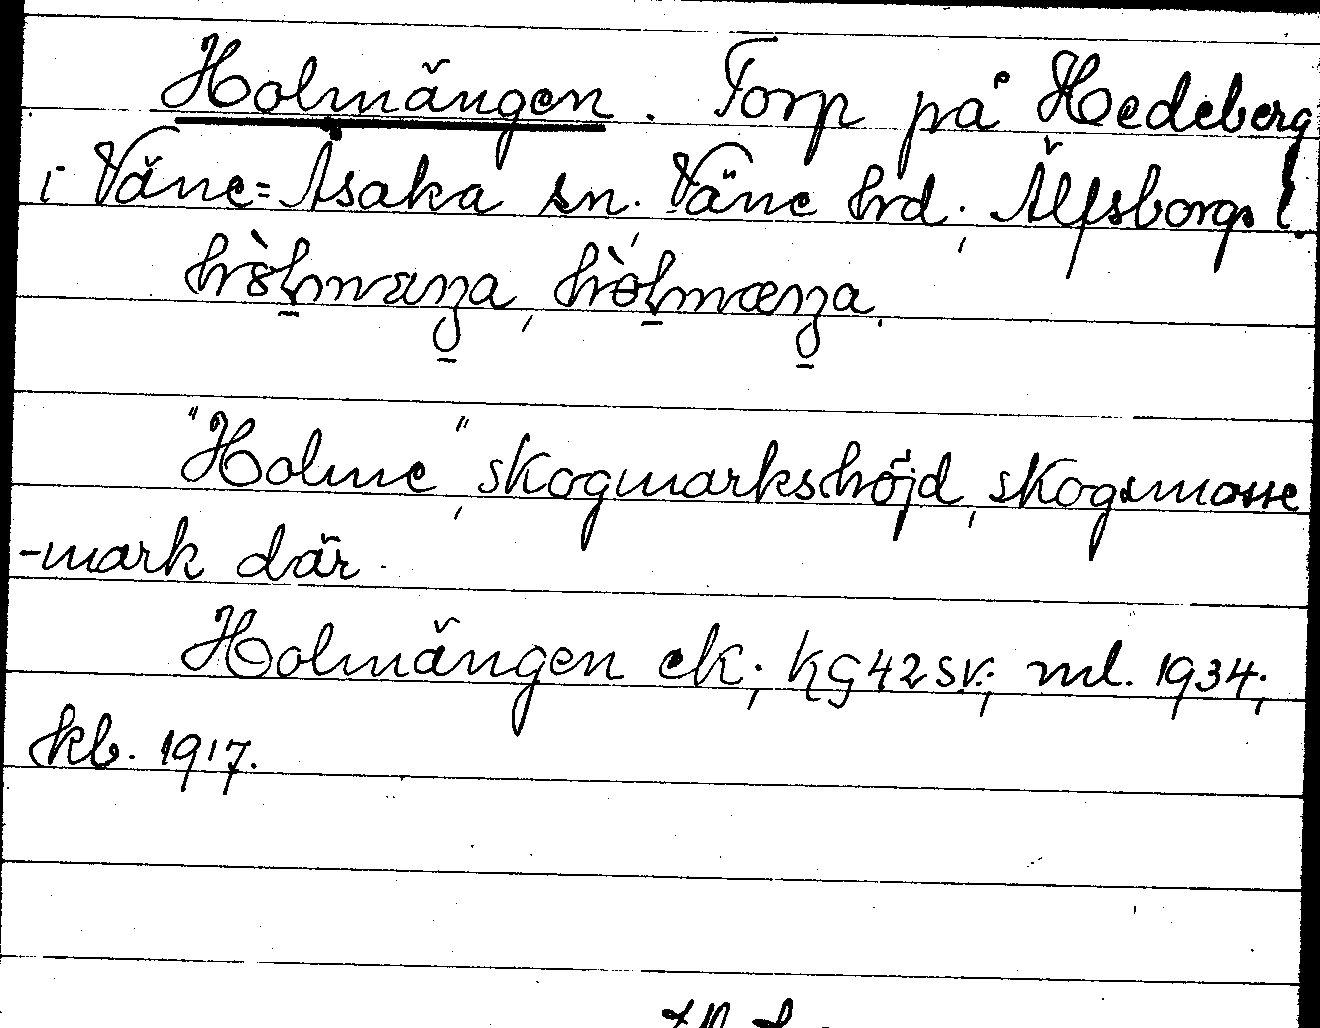 Holmängen. Torp på Hedeberg
i Väne=Åsaka sn, Väne hrd, Älfsborgs l.
"Holme", skogmarkshöjd, skogsmosse
-mark där.
Holmängen ek; KG42SV; ml. 1934;
kb. 1917.